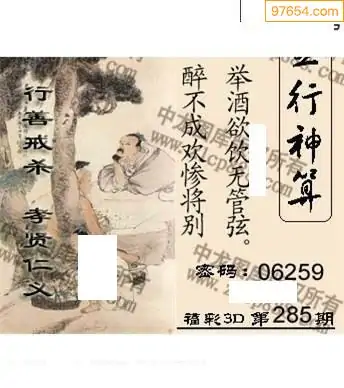 97654.com
行神算
举酒欲饮无管弦。
醉不成欢惨将别
行善戒杀 孝贤仁义
密码：06259
福彩3D 第285期